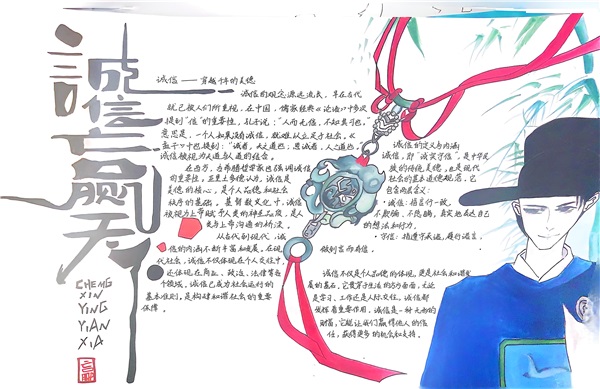 誠信赢天
CHENG
XIN
YING
TIAN
XIA
诚信 —— 穿越千年的美德
诚信的观念源远流长，早在古代
就已被人们所重视，在中国，儒家经典《论语》中多次
提到“信”的重要性，孔子说：“人而无信，不知其可也。”
意思是，一个人如果没有诚信，就难以立足于社会，《
孟子》中也提到：“诚者，天之道也；思诚者，人之道也。”
诚信被视为天道与人道的结合。
在西方，古希腊哲学家也强调诚信
的重要性，亚里士多德认为，诚信是
美德的核心，是个人品德和社会
秩序的基础。基督教文化中，诚信
被视为上帝赋予人类的神圣品质，是人
类与上帝沟通的桥梁。
从古代到现代，诚
信的内涵不断丰富和发展，在现
代社会，诚信不仅体现在个人交往中，
还体现在商业、政治、法律等各
个领域，诚信已成为社会运行的
基本准则，是构建和谐社会的重要
保障。
诚信的定义与内涵
诚信，即“诚实守信”，是中华民
族的传统美德，也是现代
社会的基本道德规范，它
包含两层含义：
·诚信：指言行一致，
不欺骗、不隐瞒，真实地表达自己
的想法和行为。
·守信：指遵守承诺，履行诺言，
做到言而有信。
诚信不仅是个人品德的体现，更是社会和谐发
展的基石，它贯穿于生活的方方面面，无论
是学习、工作还是人际交往，诚信都
发挥着重要作用，诚信是一种无形的
财富，它能让我们赢得他人的信
任，获得更多的机会和支持。